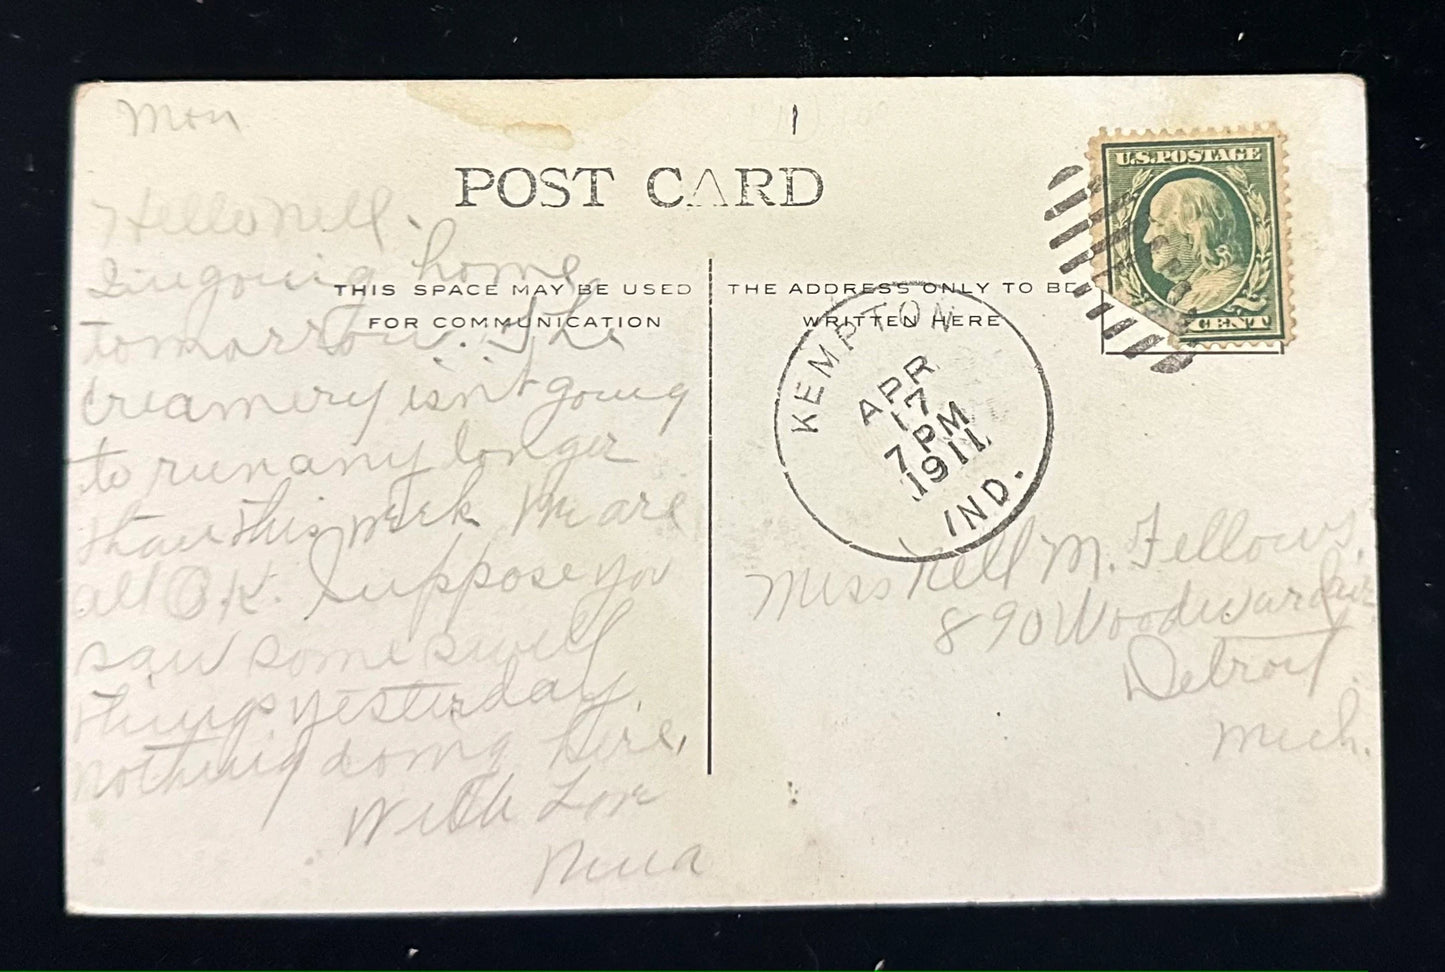 Mon
POST CARD
U.S. POSTAGE
CENT
THIS SPACE MAY BE USED
FOR COMMUNICATION
THE ADDRESS ONLY TO BE
WRITTEN HERE
KEMPTON
APR
17
7 PM
1911
IND.
Hello Nell.
I'm going home
tomorrow. The
creamery isn't going
to run any longer
than this week. We are
all O.K. Suppose you
saw some swell
things yesterday.
nothing doing here,
With Love
Nina
Miss Nell M. Fellows.
890 Woodward Ave
Detroit
Mich.